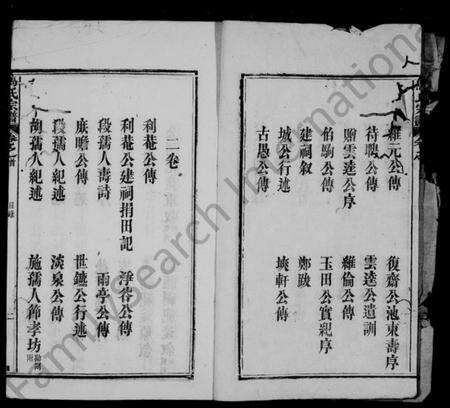 羅元公傳 復齋公池東壽序
待聘公傳 雲逵公遺訓
贈雲逵公序 維倫公傳
伯駒公傳 玉田公實親序
建祠叙 鄭跋
城公行述 塽軒公傳
古愚公傳
二卷
利菴公傳
利菴公建祠捐田記 淨蓉公傳
段孺人壽詩 雨亭公傳
庶瞻公傳 世鉞公行述
段孺人紀述 淡泉公傳
胡孺人紀述 施孺人節孝坊
氏宗譜
FamilySearch International